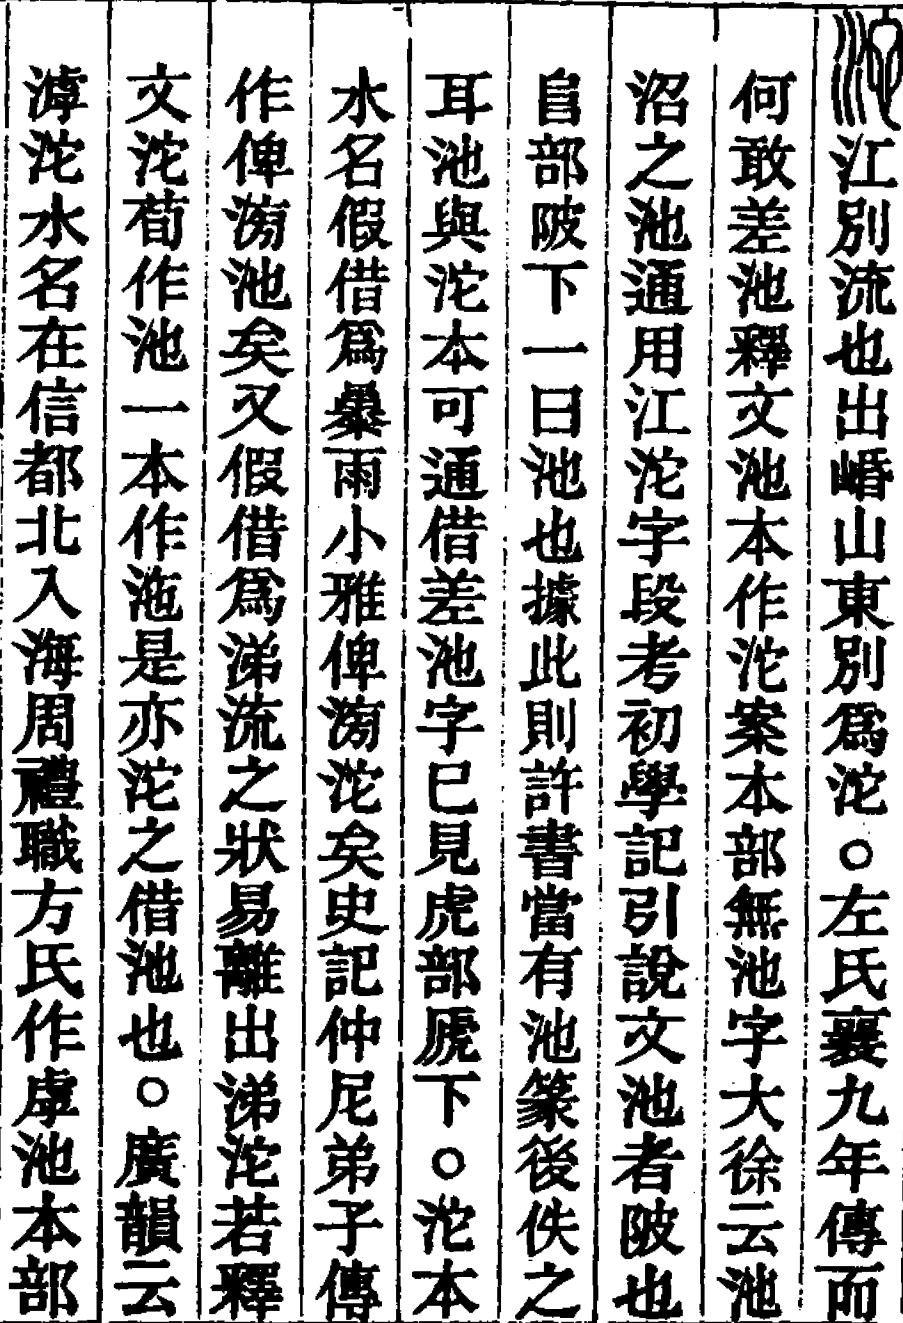 沱江別流也出崏山東別爲沱○左氏襄九年傳而
何敢差池釋文池本作沱案本部無池字大徐云池
沼之池通用江沱字段考初學記引說文池者陂也
𨸏部陂下一曰池也據此則許書當有池篆後佚之
耳池與沱本可通借差池字已見虎部虒下○沱本
水名假借爲㬥雨小雅俾滂沱矣史記仲尼弟子傳
作俾滂池矣又假借爲涕流之狀易離出涕沱若釋
文沱荀作池一本作沲是亦沱之借池也○廣韻云
滹沱水名在信都北入海周禮職方氏作虖池本部